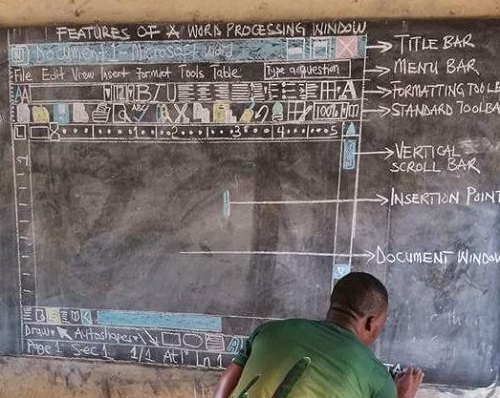 FEATURES OF A WORD PROCESSING WINDOW
Document 1 - Microsoft Word
TITLE BAR
File Edit View Insert Format Tools Table
Type a question
MENU BAR
A B I U A
FORMATTING TOOLB
ABC 100%
STANDARD TOOLBA
L 1 2 3 4 5
VERTICAL
SCROLL BAR
INSERTION POINT
DOCUMENT WINDOW
Draw AutoShapes
Page 1 Sec 1 1/1 At 1" Ln 1
TAS